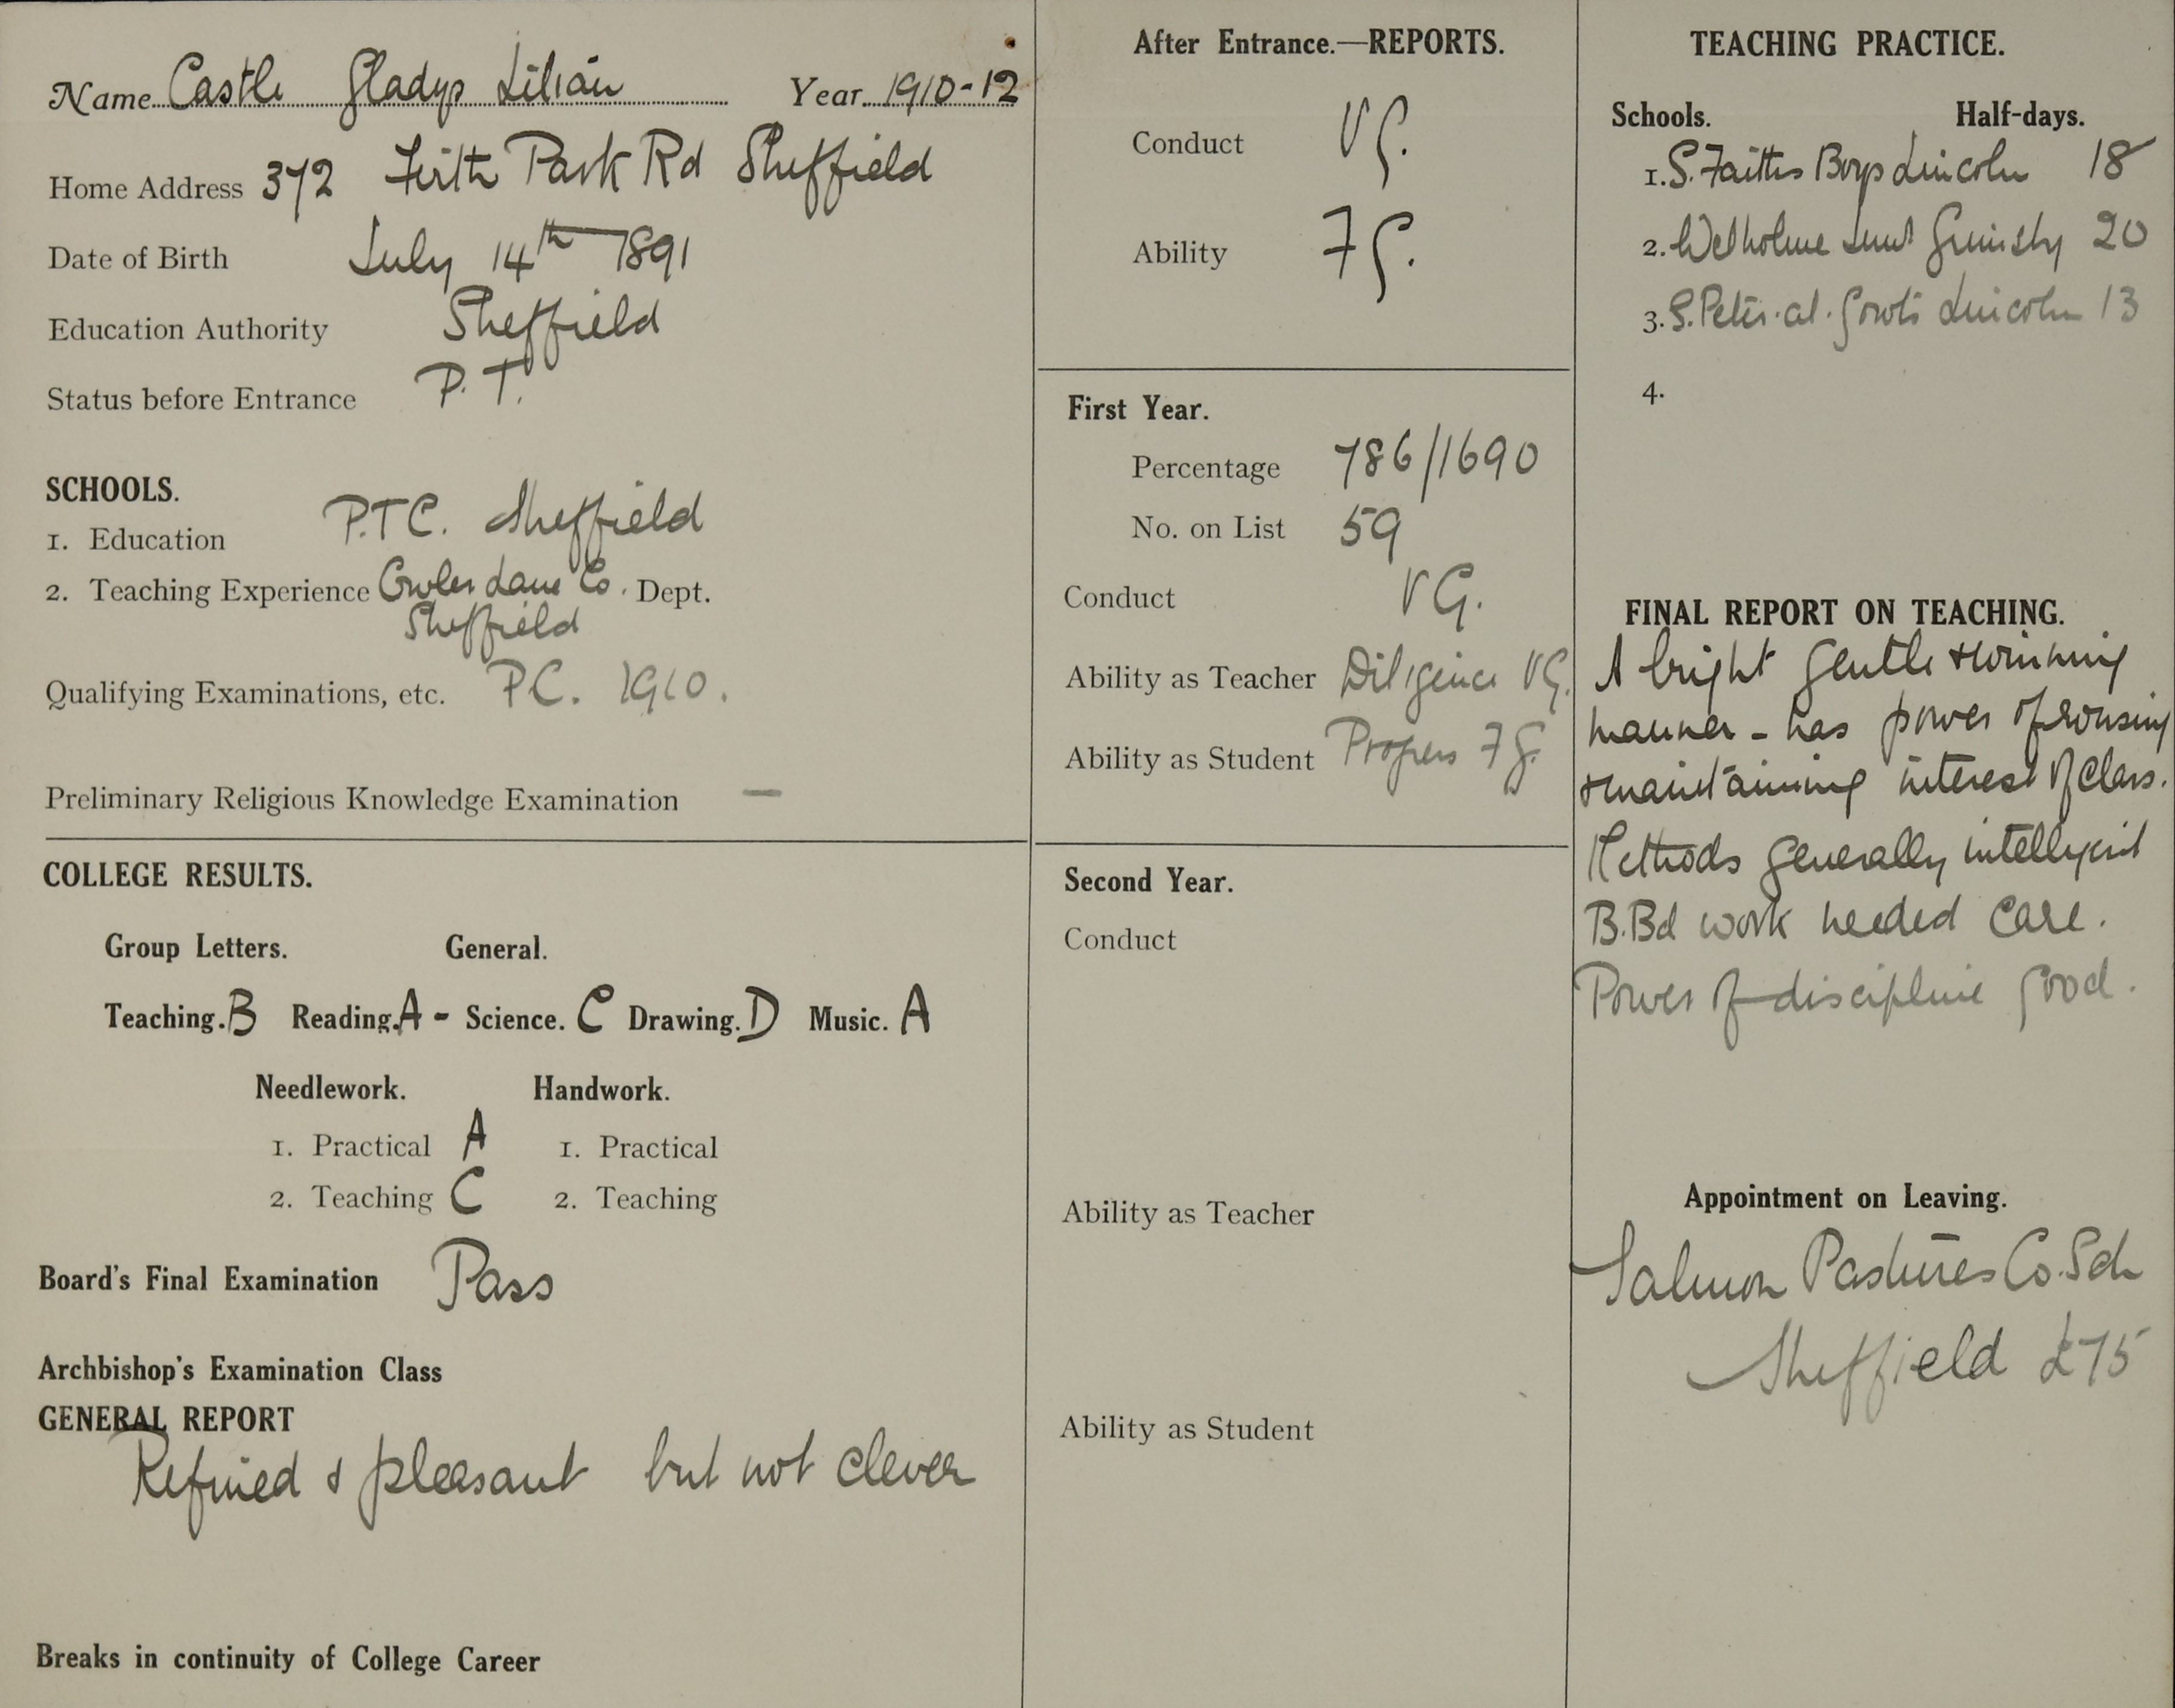 Name Castle Gladys Lilian Year 1910-12
Home Address 372 Firth Park Rd Sheffield
Date of Birth July 14th 1891
Education Authority Sheffield
Status before Entrance P.T.
SCHOOLS.
1. Education P.T.C. Sheffield
2. Teaching Experience Owler Lane Co. Dept.
Sheffield
Qualifying Examinations, etc. P.C. 1910.
Preliminary Religious Knowledge Examination —
COLLEGE RESULTS.
Group Letters. General.
Teaching. B Reading. A - Science. C Drawing. D Music. A
Needlework. Handwork.
1. Practical A 1. Practical
2. Teaching C 2. Teaching
Board's Final Examination Pass
Archbishop's Examination Class
GENERAL REPORT
Refined & pleasant but not clever
Breaks in continuity of College Career
After Entrance.—REPORTS.
Conduct VG.
Ability FG.
First Year.
Percentage 786/1690
No. on List 59
Conduct VG.
Ability as Teacher Diligence VG.
Ability as Student Progress FG.
Second Year.
Conduct
Ability as Teacher
Ability as Student
TEACHING PRACTICE.
Schools. Half-days.
1. S. Faiths Boys Lincoln 18
2. Welholme Grimsby 20
3. S. Peter-at-Gowts Lincoln 13
4.
FINAL REPORT ON TEACHING.
A bright gentle & winning
manner - has power of rousing
& maintaining interest of class.
Methods generally intelligent
B.Bd work needed care.
Power of discipline good.
Appointment on Leaving.
Salmon Pastures Co. Sch
Sheffield £75